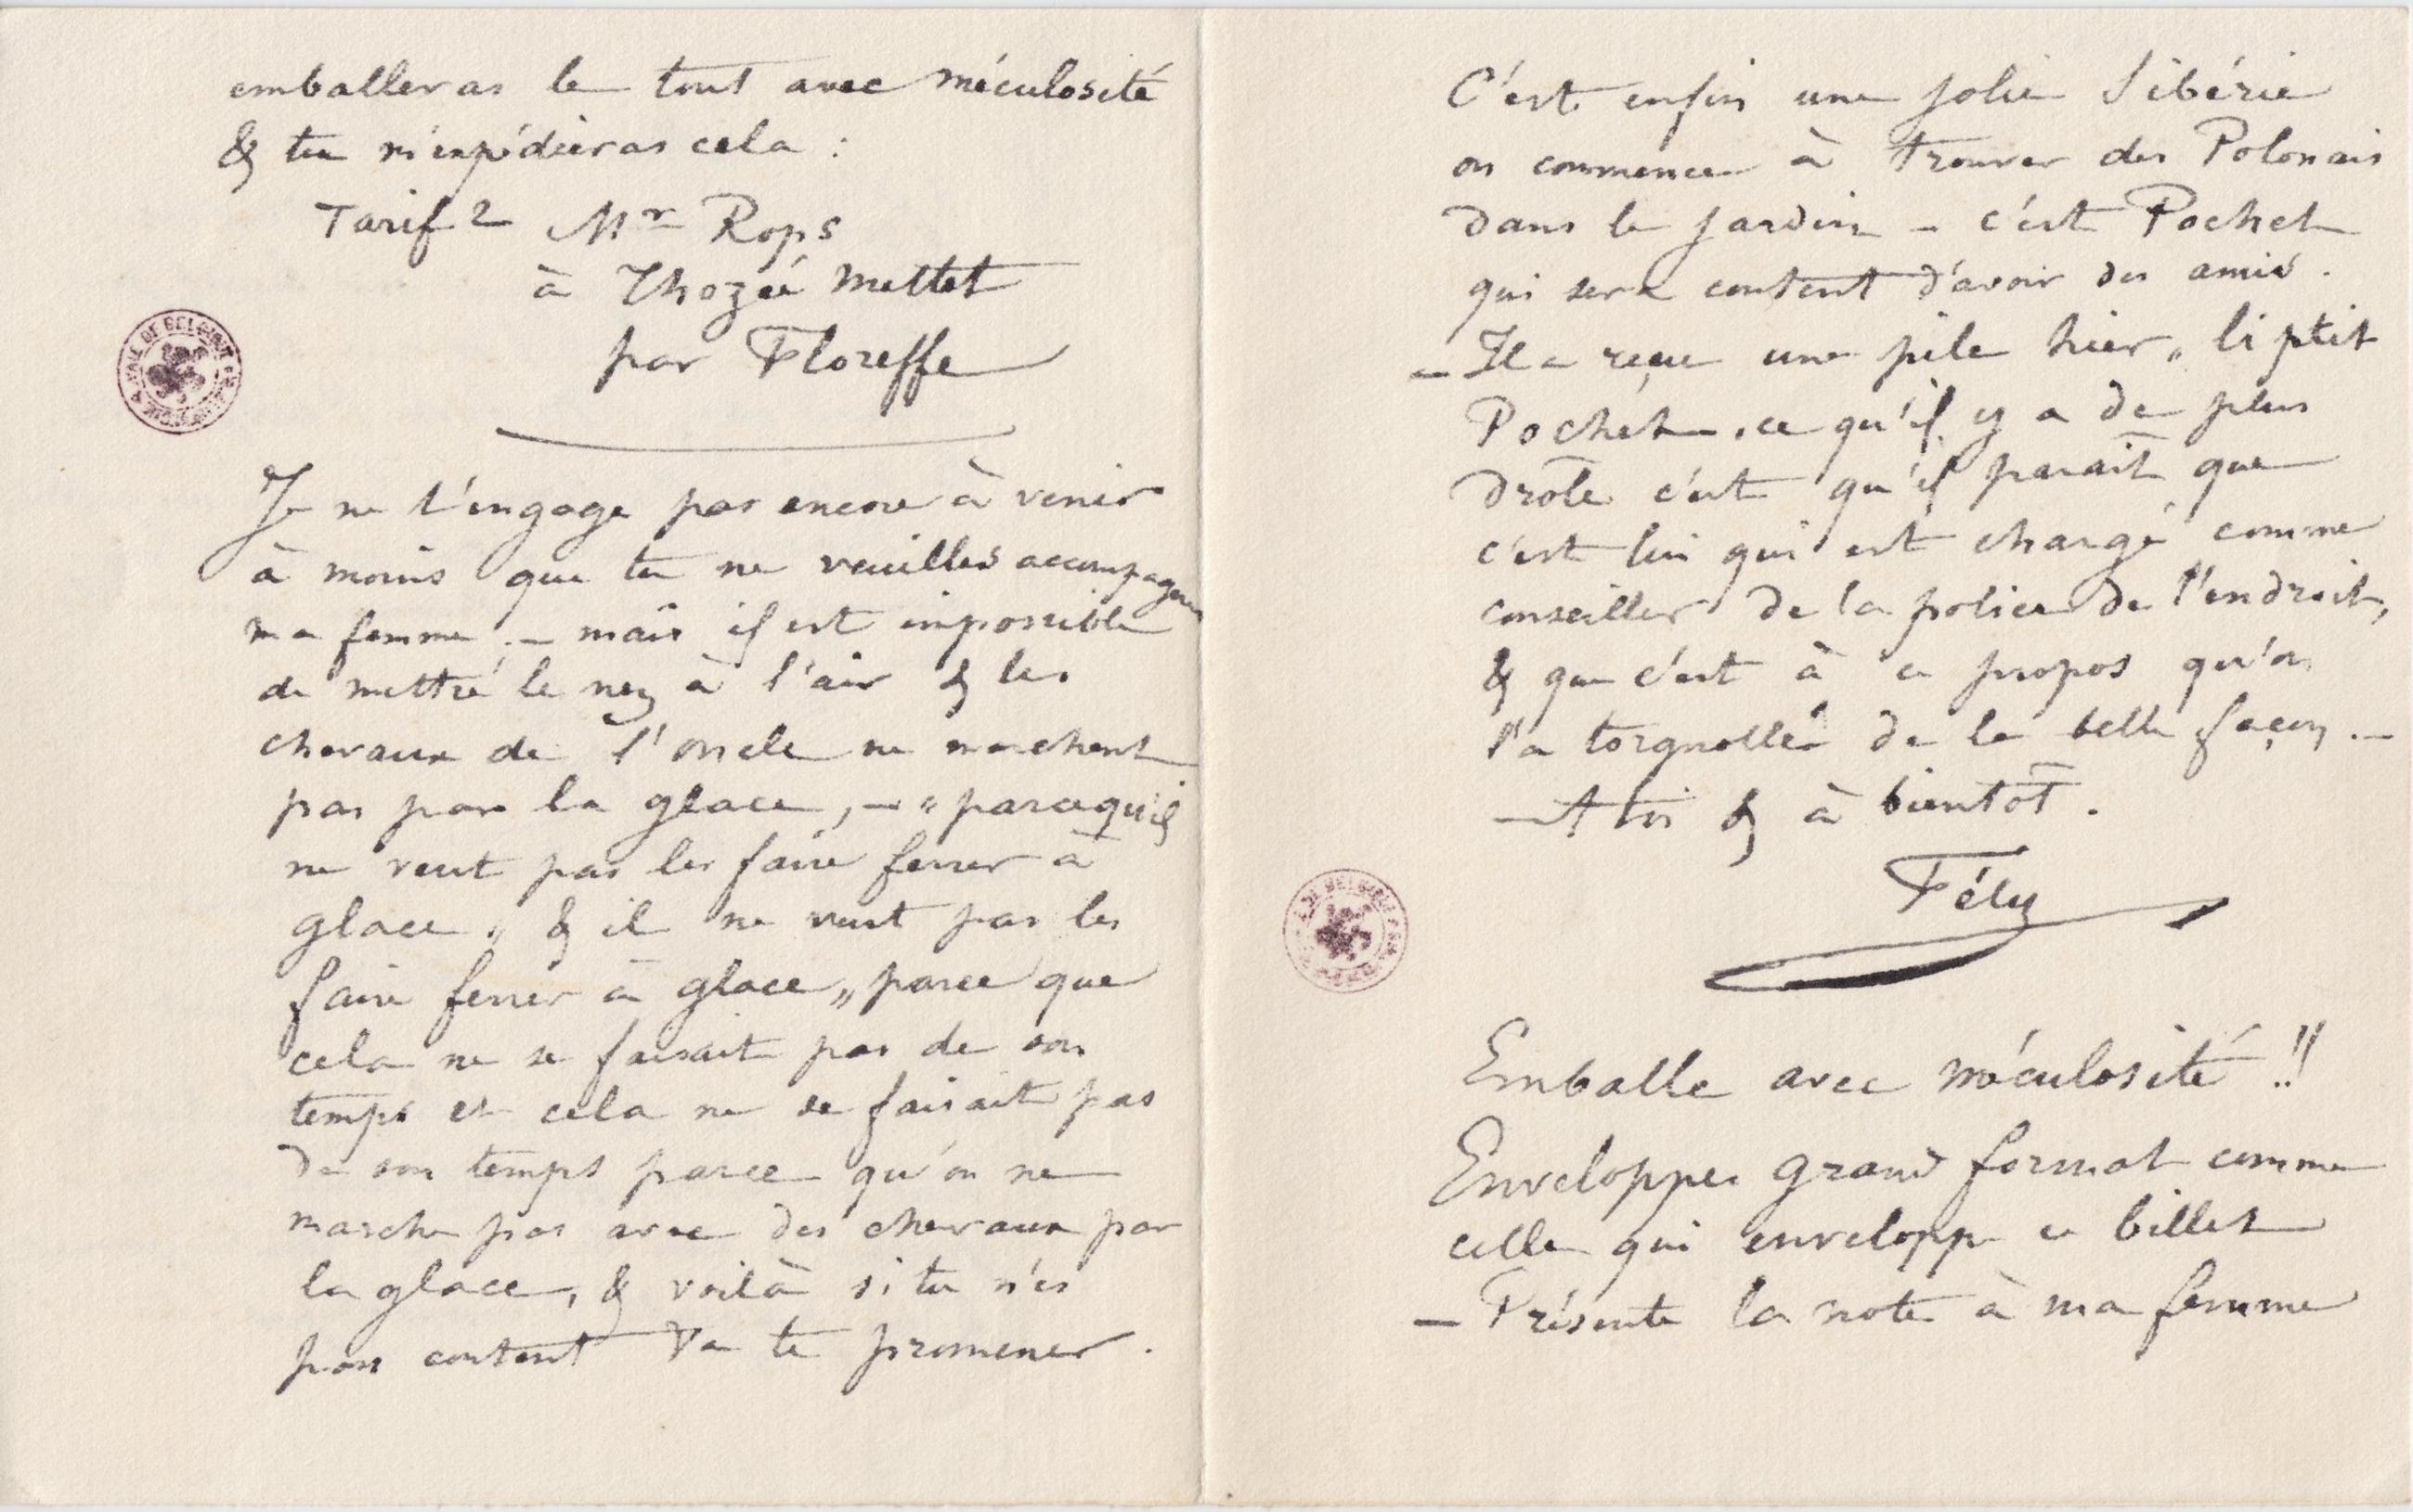 emballeras le tout avec méculosité
& tu m'expédieras cela :
Tarif 2 Mr Rops
à Thozée Mettet
par Floreffe
Je ne t'engage pas encore à venir
à moins que tu ne veuilles accompagner
ma femme. – mais il est impossible
de mettre le nez à l'air & les
chevaux de l'oncle ne marchent
pas par la glace, – "parcequ'il
ne veut pas les faire ferrer à
glace" & il ne veut pas les
faire ferrer à glace "parce que
cela ne se faisait pas de son
temps et cela ne se faisait pas
de son temps parce qu'on ne
marche pas avec des chevaux par
la glace, & voilà si tu n'es
pas content va te promener.
C'est enfin une jolie Sibérie
on commence à trouver des Polonais
dans le jardin – c'est Pochet
qui sera content d'avoir des amis.
– Il a reçu une pile hier, li ptit
Pochet. ce qu'il y a de plus
drôle c'est qu'il paraît que
c'est lui qui est chargé comme
conseiller de la police de l'endroit,
& que c'est à ce propos qu'on
l'a torgnollé de la belle façon. –
– A toi & à bientôt.
Fély
Emballe avec méculosité !!
Enveloppes grand format comme
celle qui enveloppe ce billet
– Présente la note à ma femme